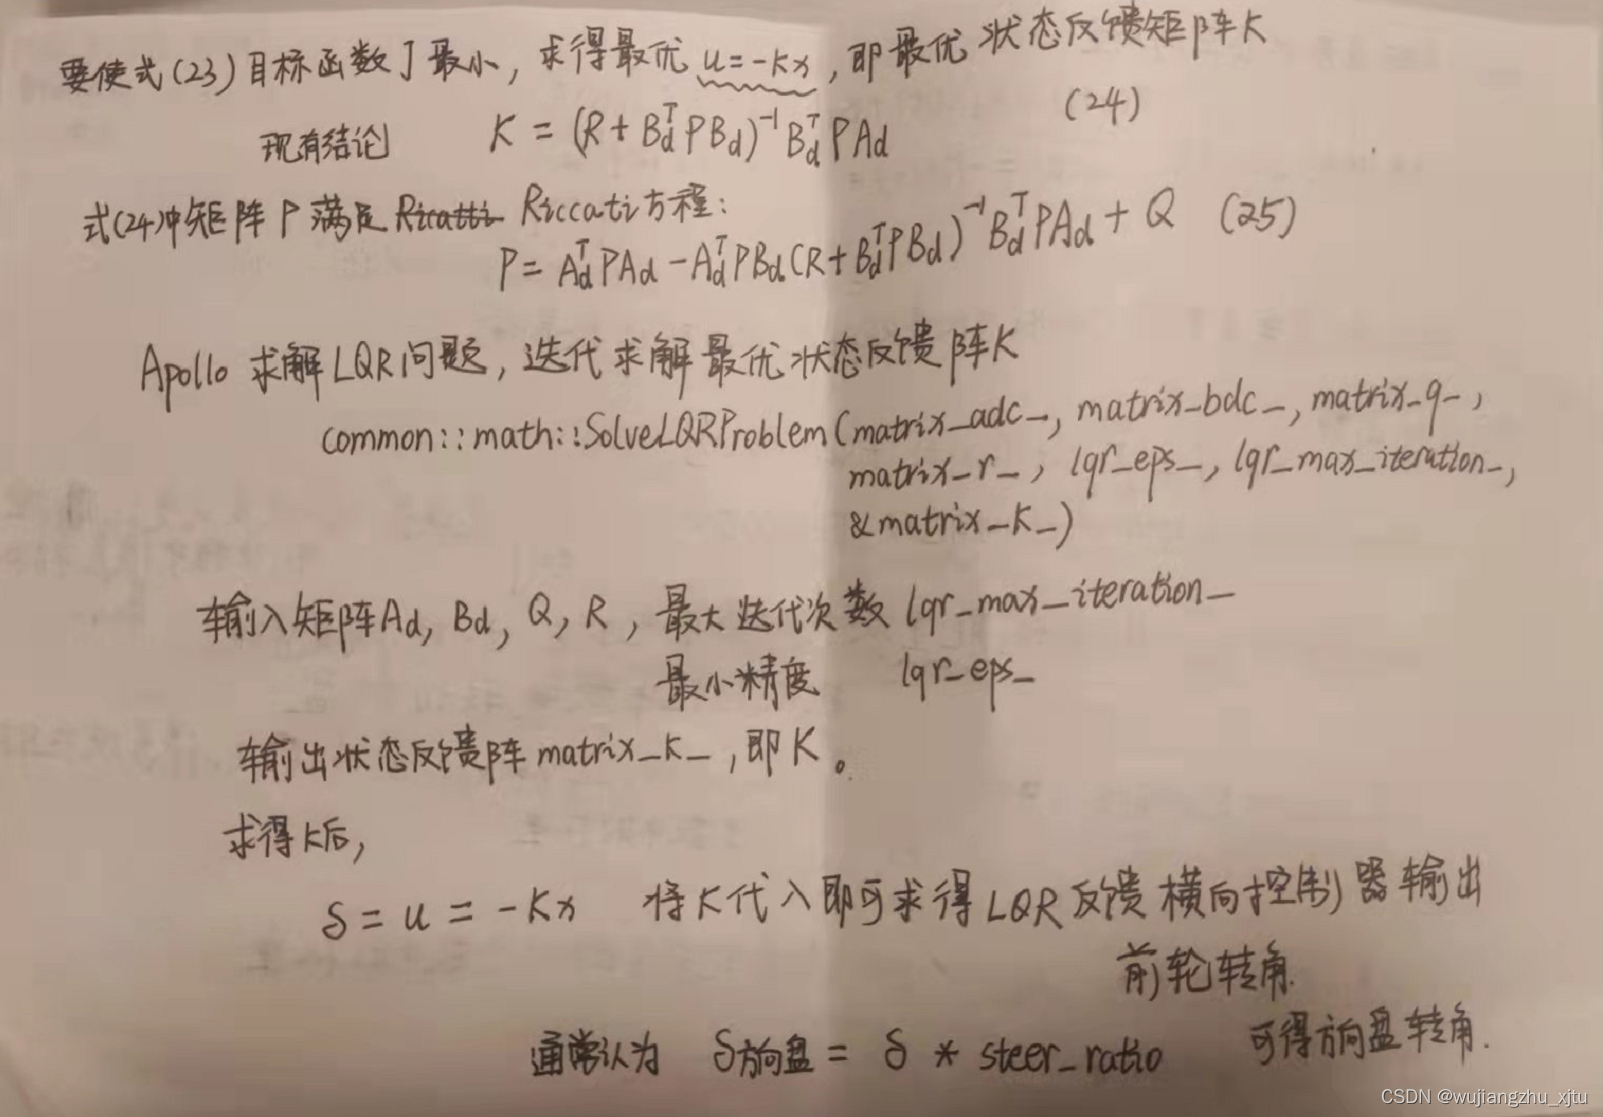 要使式(23)目标函数J最小，求得最优 u=-Kx，即最优状态反馈矩阵K
现有结论 K = (R+B_d^T P B_d)^{-1} B_d^T P A_d (24)
式(24)中矩阵P满足 Ricatti Riccati方程：
P = A_d^T P A_d - A_d^T P B_d (R+B_d^T P B_d)^{-1} B_d^T P A_d + Q (25)
Apollo 求解LQR问题，迭代求解最优状态反馈阵K
common::math::SolveLQRProblem(matrix_adc_, matrix_bdc_, matrix_q_,
matrix_r_, lqr_eps_, lqr_max_iteration_,
&matrix_k_)
输入矩阵Ad, Bd, Q, R，最大迭代次数 lqr_max_iteration_
最小精度 lqr_eps_
输出状态反馈阵 matrix_k_，即K。
求得K后，
δ = u = -Kx 将K代入即可求得LQR反馈横向控制器输出
前轮转角.
通常认为 δ方向盘 = δ * steer_ratio 可得方向盘转角.
CSDN @wujiangzhu_xjtu